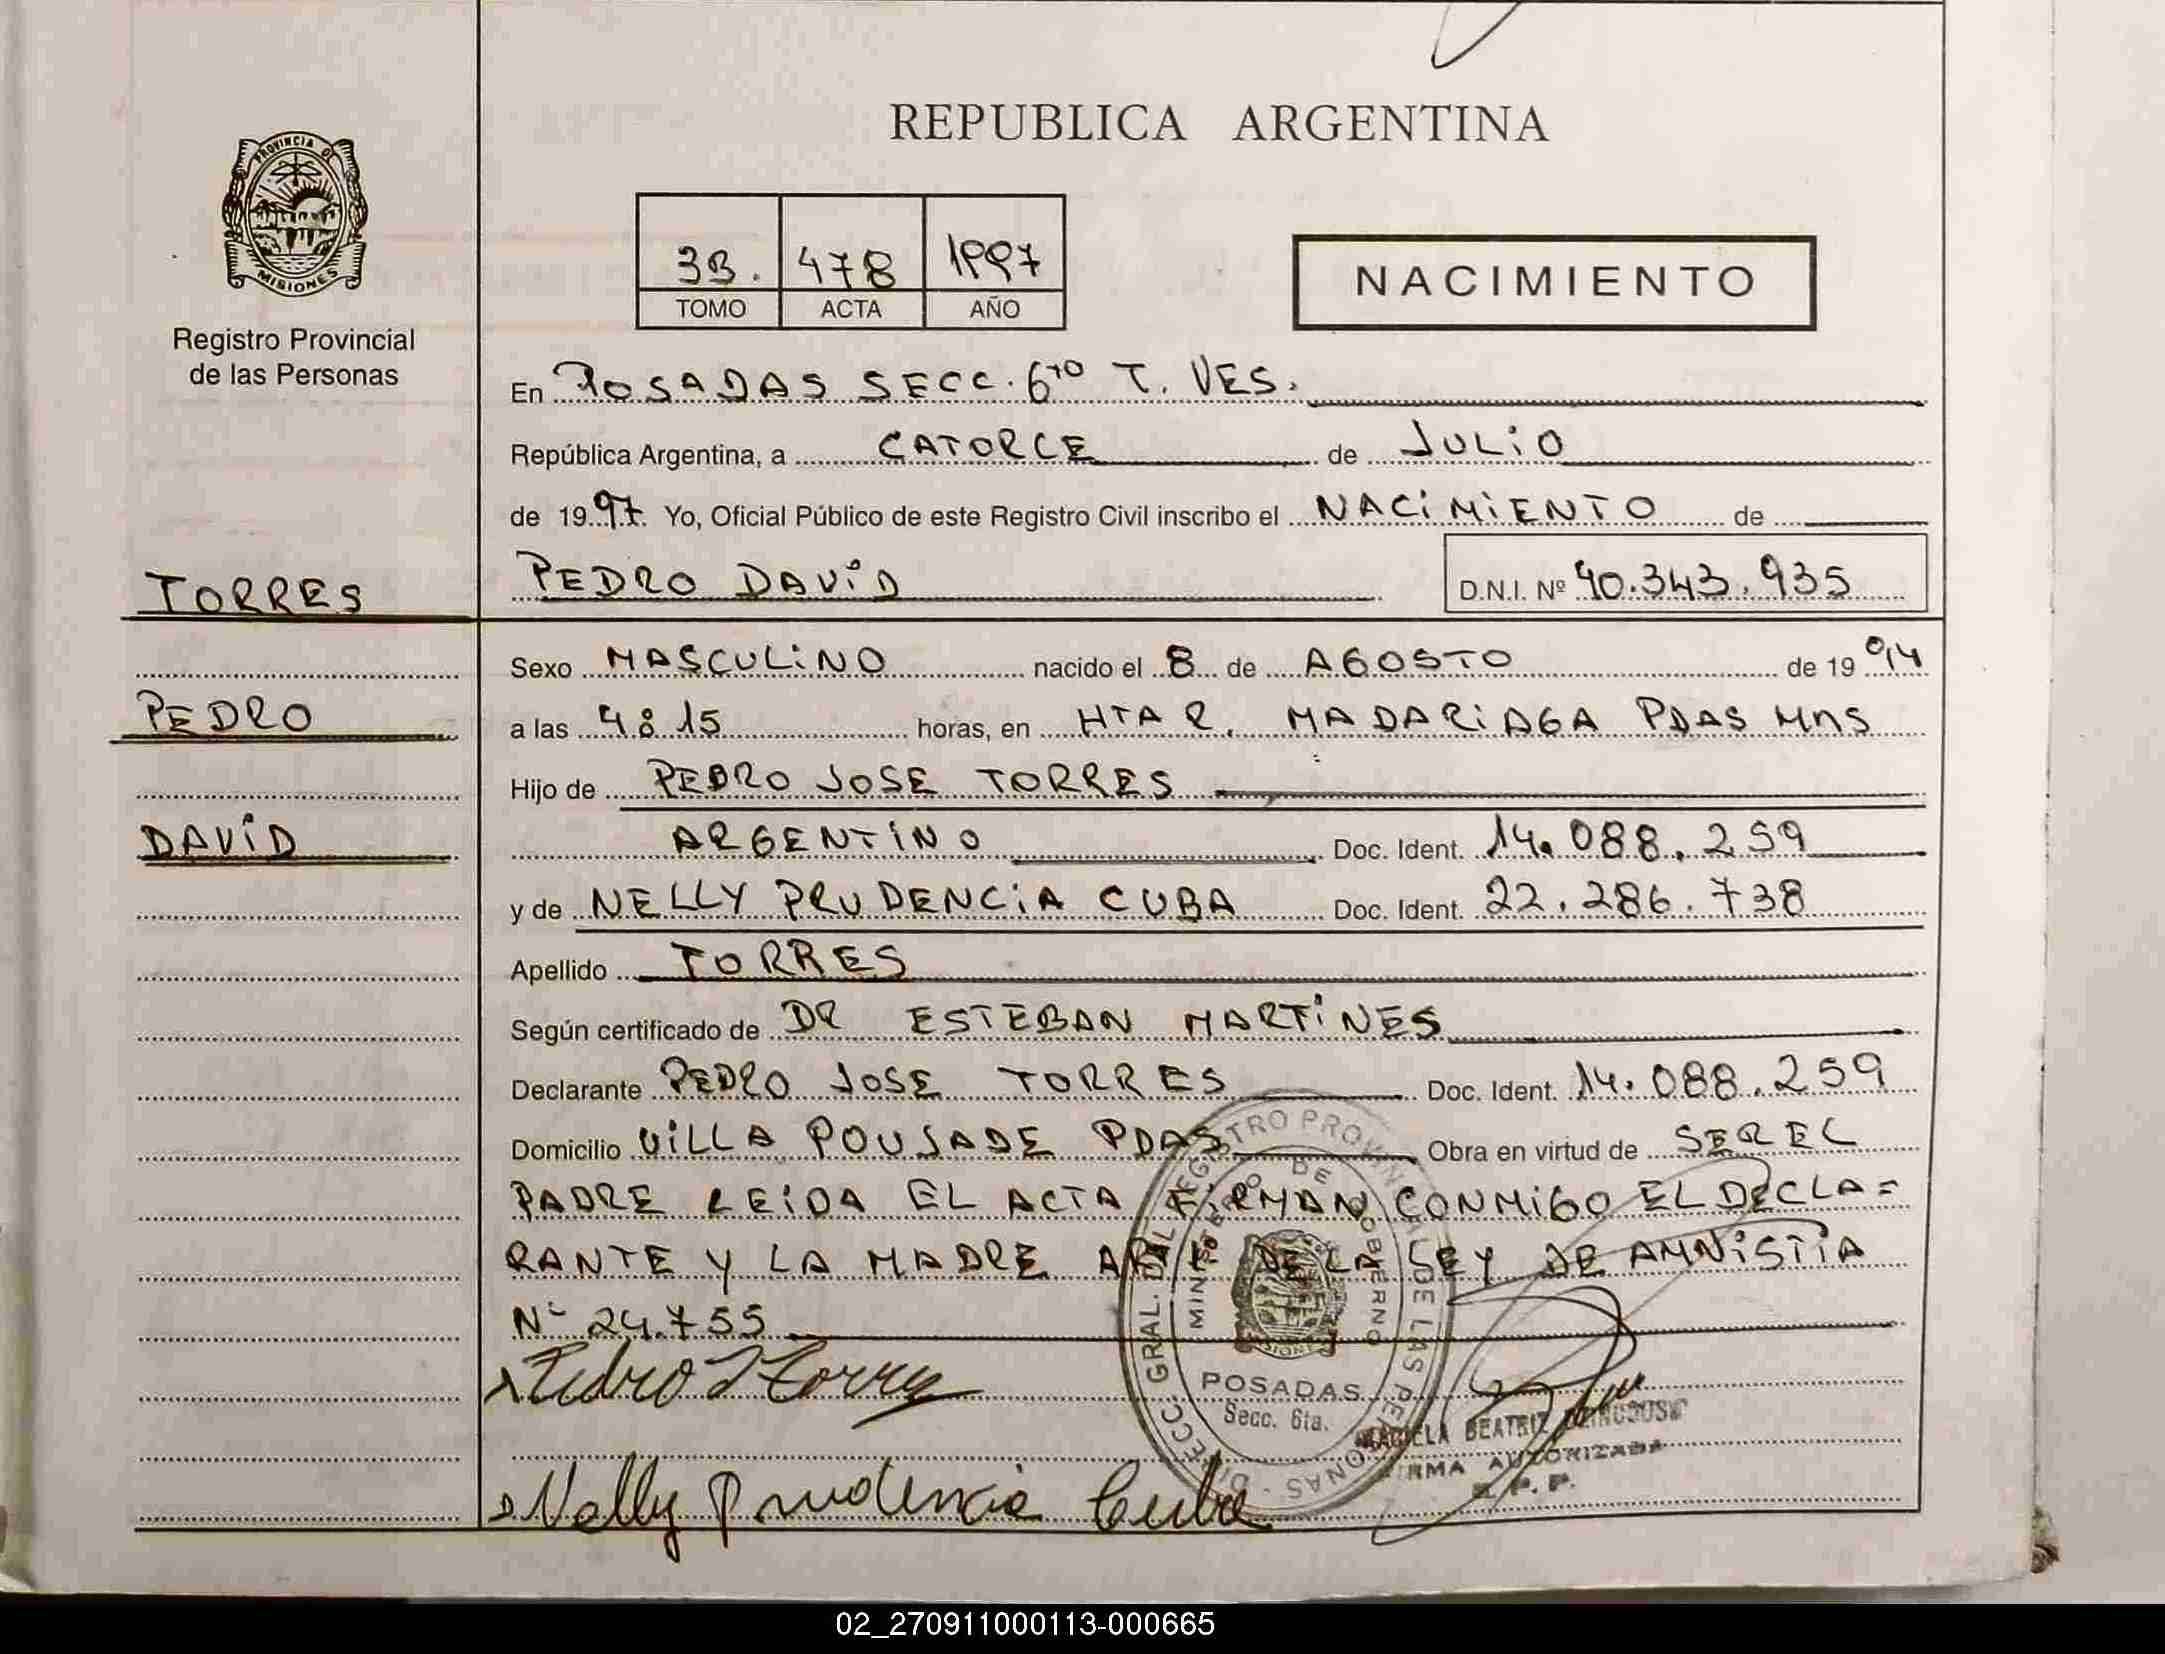 REPUBLICA ARGENTINA
PROVINCIA DE
MISIONES
Registro Provincial
de las Personas
33. 478 1997
TOMO ACTA AÑO
NACIMIENTO
En POSADAS SECC. 6to T. VES.
República Argentina, a CATORCE de JULIO
de 1997. Yo, Oficial Público de este Registro Civil inscribo el NACIMIENTO de
TORRES
PEDRO DAVID D.N.I. Nº 40.343.935
Sexo MASCULINO nacido el 8 de AGOSTO de 1994
PEDRO
a las 4:15 horas, en HTA R. MADARIAGA PDAS MNS
Hijo de PEDRO JOSE TORRES
DAVID
ARGENTINO Doc. Ident. 14.088.259
y de NELLY PRUDENCIA CUBA Doc. Ident. 22.286.738
Apellido TORRES
Según certificado de DR ESTEBAN MARTINES
Declarante PEDRO JOSE TORRES Doc. Ident. 14.088.259
Domicilio VILLA POUJADE PDAS Obra en virtud de SEREL
PADRE LEIDA EL ACTA FIRMAN CONMIGO EL DECLA=
RANTE Y LA MADRE DE LA LEY DE AMNISTIA
Nº 24.755
Pedro J Torres
Nelly Prudencia Cuba
DIRECC. GRAL. DEL REGISTRO PROVINCIAL DE LAS PERSONAS
MINISTERIO DE GOBIERNO
MISIONES
POSADAS
Secc. 6ta.
BEATRIZ
FIRMA AUTORIZADA
R. P. P.
02_270911000113-000665